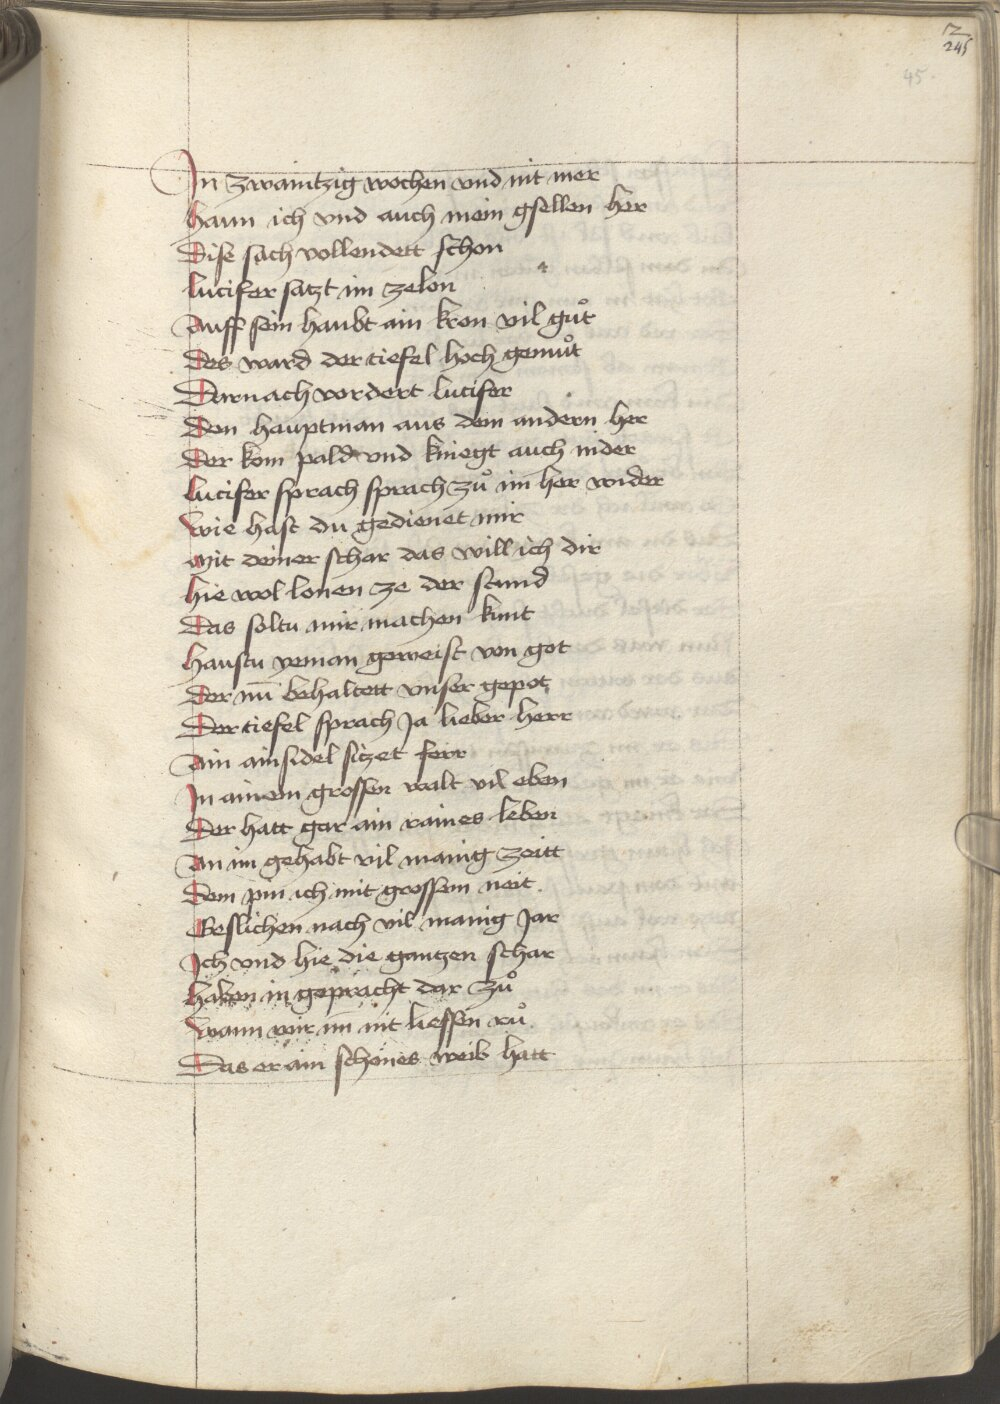 2
245
45.
In zwaintzig wochen vnd nit mer
Haun ich vnd auch mein gsellen her
Dise sach vollendett schon
Lucifer satzt im ze lon
Auff sein haubt ain kron vil guͦt
Des ward der tiefel hoch gemuͦt
Darnach vordert lucifer
Den hauptman aus dem andern her
Der kom pald vnd kniegt auch nider
Lucifer sprach sprach zuͦ im her wider
Wie hast du gedienet mir
Mit deiner schar das will ich dir
Hie wol lonen ze der stund
Das soltu mir machen kunt
Haustu yeman geweist von got
Der nū behaltett vnser gepot
Der tiefel sprach Ja lieber herr
Ain ainsidel sitzet ferr
In ainem grossen walt vil eben
Der hatt gar ain raines leben
An im gehabt vil manig zeitt
Dem pin ich mit grossem neit
Geslichen nach vil manig Jar
Ich vnd hie die gantzen schar
Haben in gepracht dar zuͦ
Wann wir im nit liessen ruͦ
Das er ain schönes weib hatt